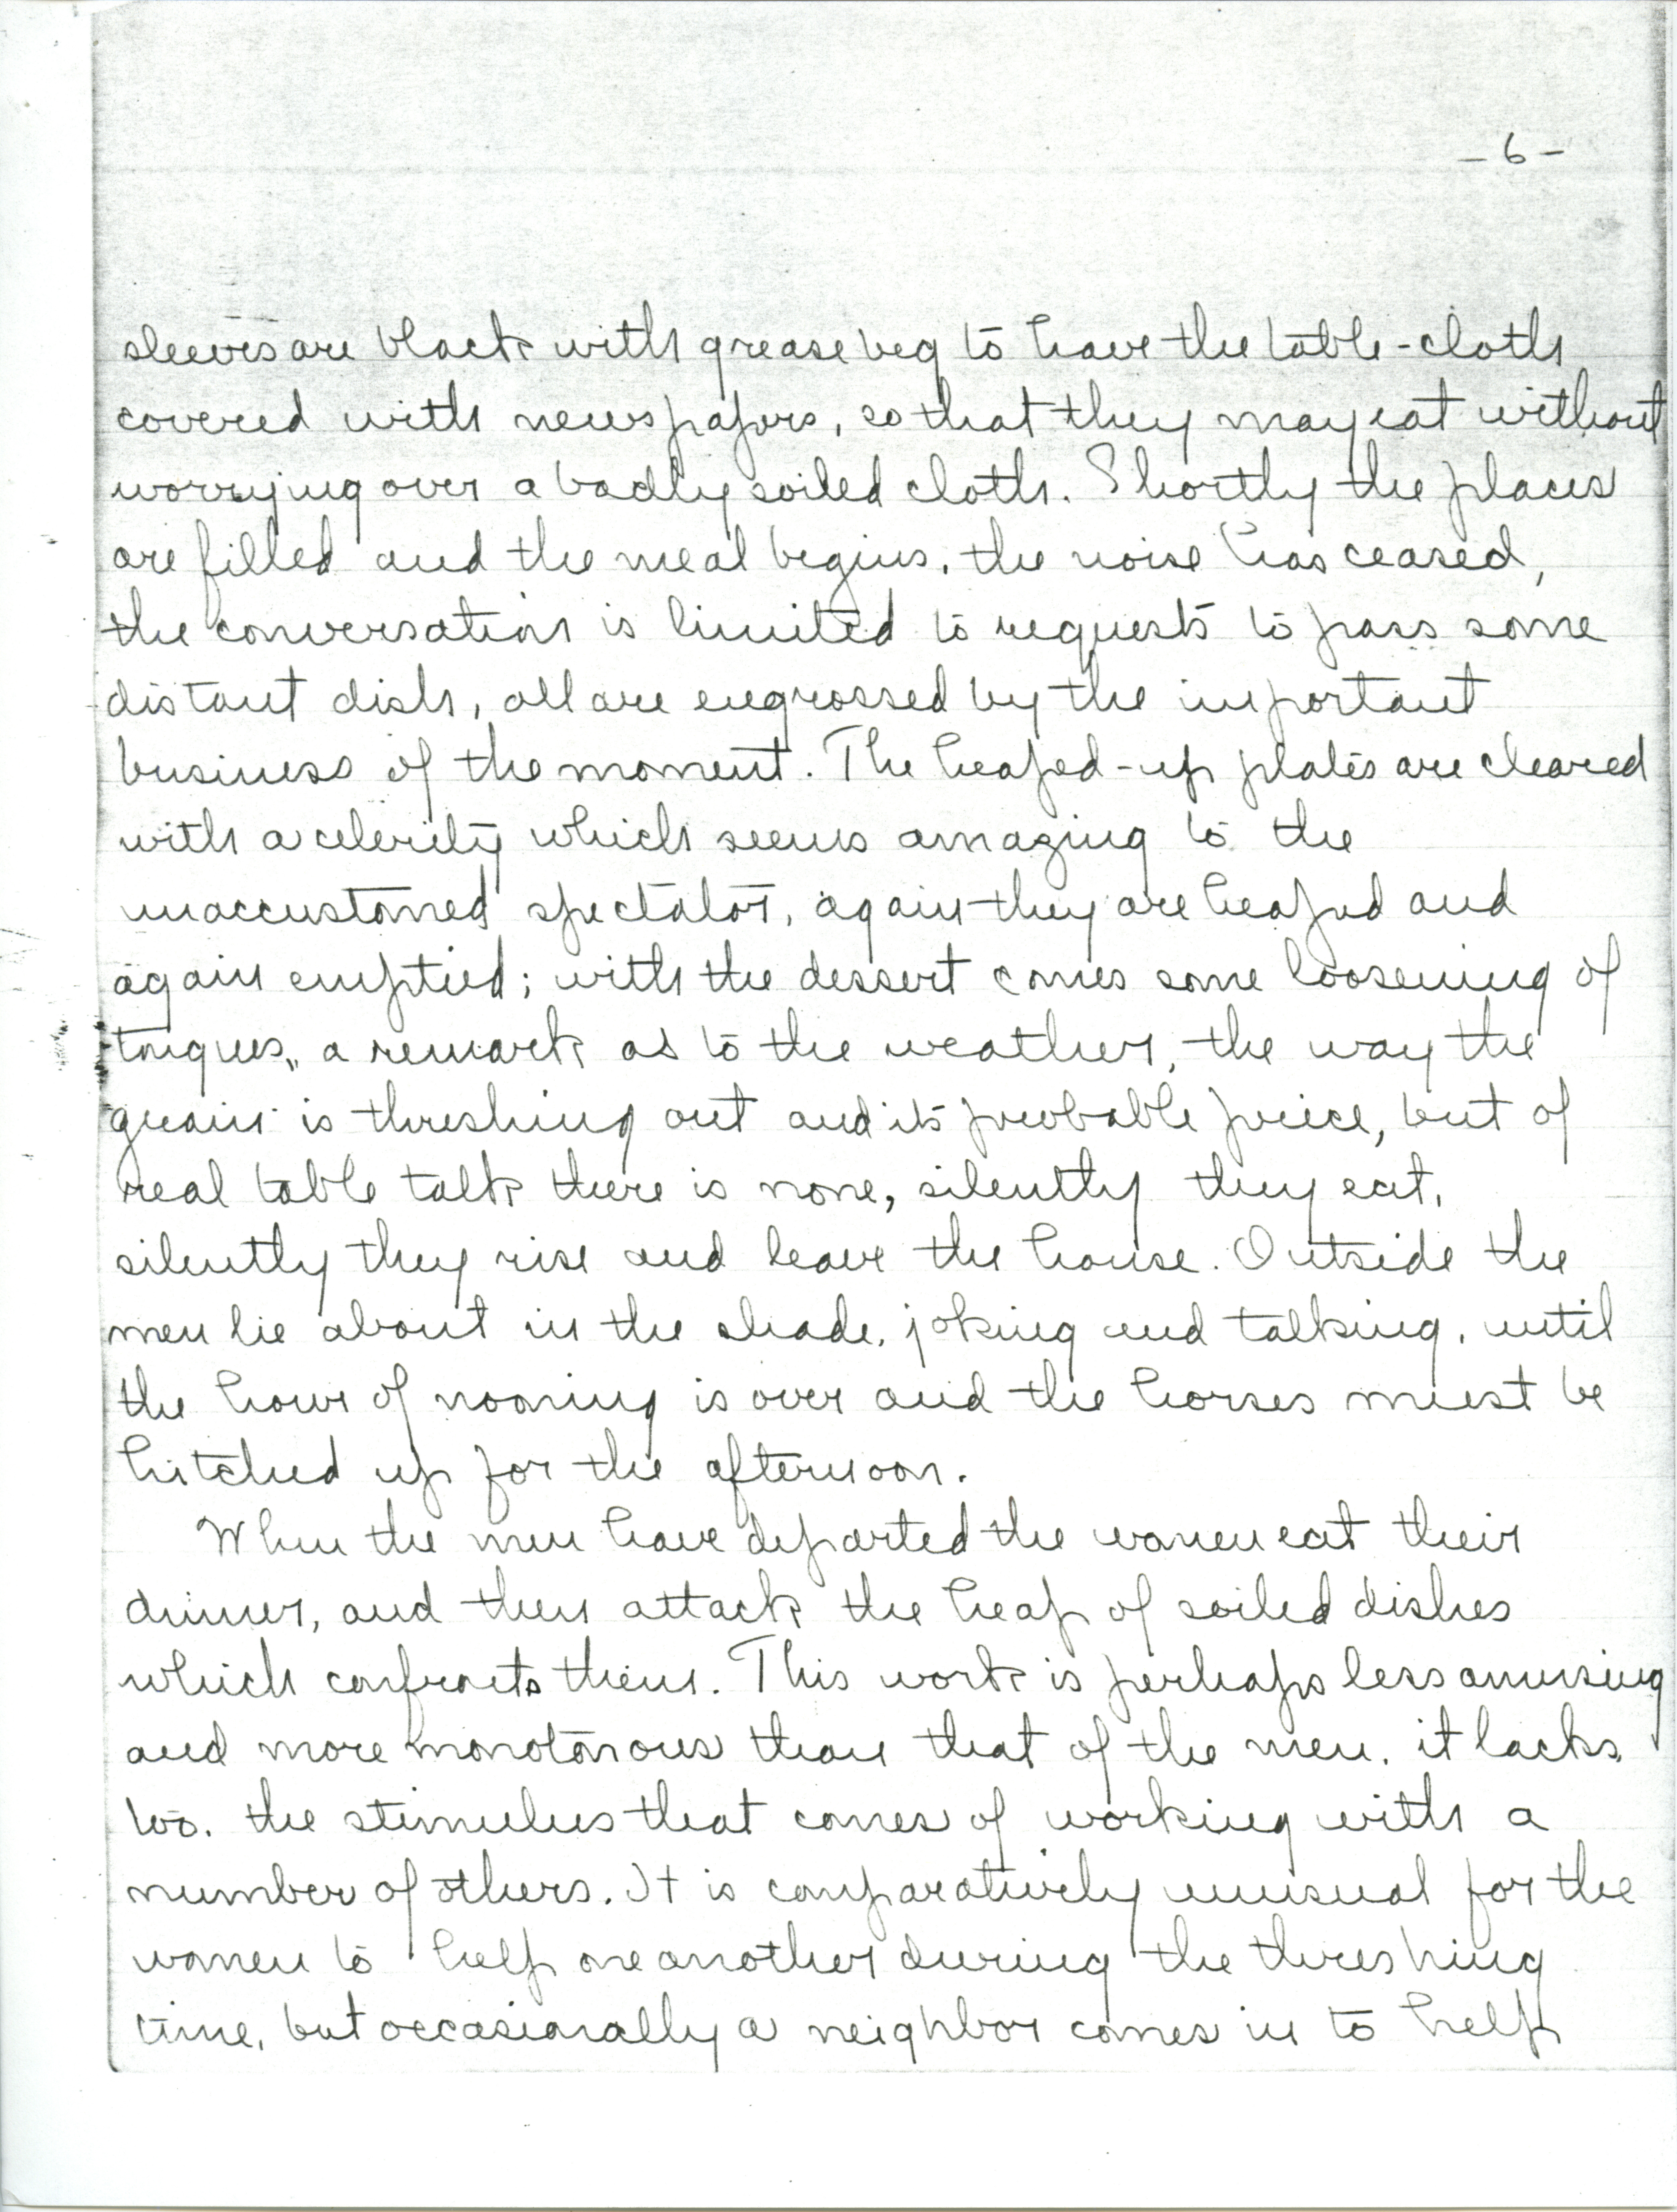 -6-
sleeves are black with grease beg to have the table-cloth
covered with newspapers, so that they may eat without
worrying over a badly soiled cloth. Shortly the places
are filled and the meal begins, the noise has ceased,
the conversation is limited to requests to pass some
distant dish, all are engrossed by the important
business of the moment. The heaped-up plates are cleared
with a celerity which seems amazing to the
unaccustomed spectator, again they are heaped and
again emptied; with the dessert comes some loosening of
tongues, a remark as to the weather, the way the
grain is threshing out and its probable price, but of
real table talk there is none, silently they eat,
silently they rise and leave the house. Outside the
men lie about in the shade, joking and talking, until
the hour of nooning is over and the horses must be
hitched up for the afternoon.
When the men have departed the women eat their
dinner, and then attack the heap of soiled dishes
which confronts them. This work is perhaps less amusing
and more monotonous than that of the men, it lacks,
too, the stimulus that comes of working with a
number of others. It is comparatively unusual for the
women to help one another during the threshing
time, but occasionally a neighbor comes in to help